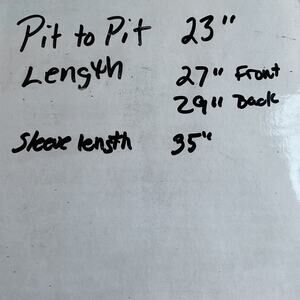 Pit to Pit 23"
Length 27" Front
29" Back
Sleeve length 35"